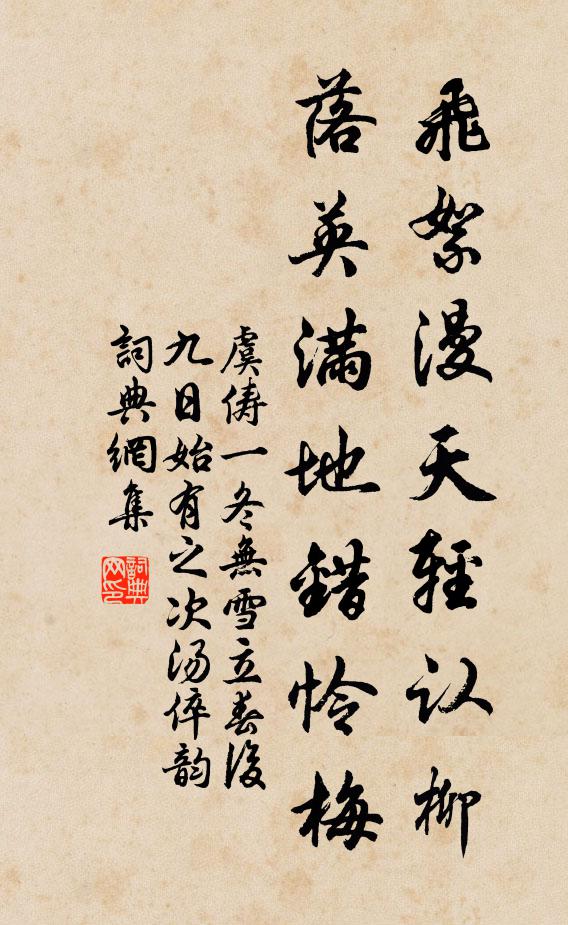 飛絮漫天輕认柳
落英滿地錯怜梅
虞儔一冬無雪立春後
九日始有之次汤倅韵
詞典網集
詞典
网印